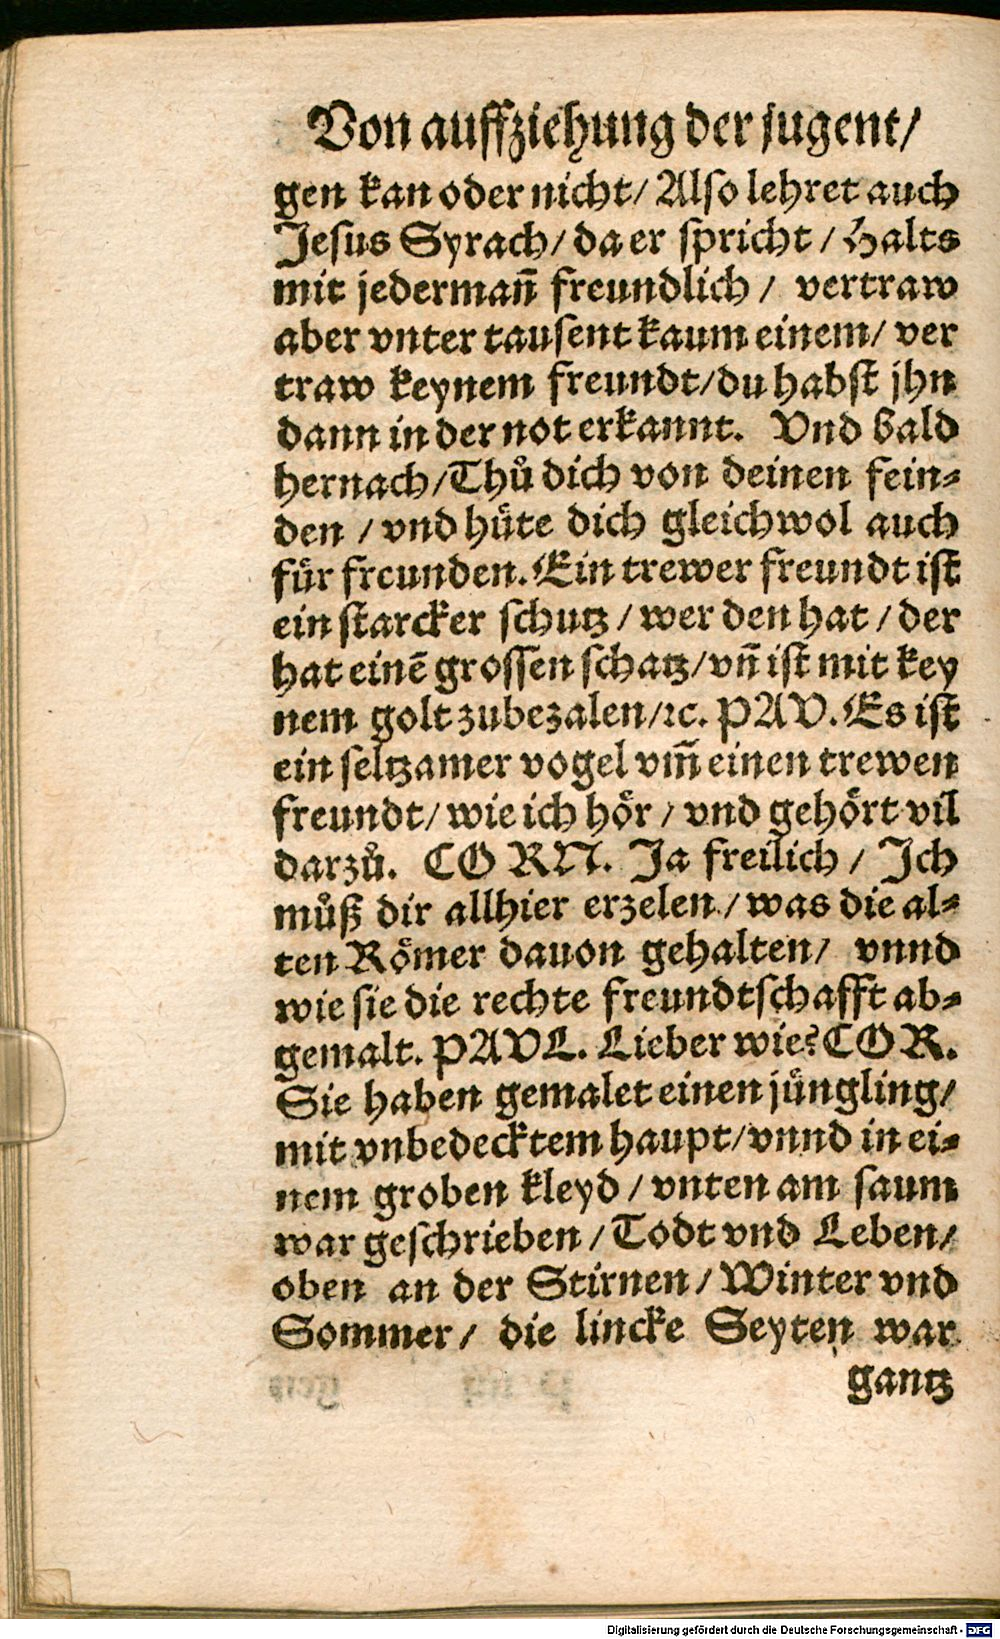 Von auffziehung der jugent/
gen kan oder nicht/ Also lehret auch
Jesus Syrach/ da er spricht / Halts
mit jedermañ freundlich / vertraw
aber vnter tausent kaum einem/ ver
traw keynem freundt/du habst jhn
dann in der not erkannt. Vnd bald
hernach/Thů dich von deinen fein⸗
den / vnd hüte dich gleichwol auch
für freunden. Ein trewer freundt ist
ein starcker schutz / wer den hat / der
hat einē grossen schatz/vñ ist mit key
nem golt zubezalen/ꝛc. PAV. Es ist
ein seltzamer vogel vm̃ einen trewen
freundt/ wie ich hör / vnd gehört vil
darzů. CORN. Ja freilich / Jch
můß dir allhier erzelen / was die al⸗
ten Römer dauon gehalten/ vnnd
wie sie die rechte freundtschafft ab⸗
gemalt. PAVL. Lieber wie? COR.
Sie haben gemalet einen jüngling/
mit vnbedecktem haupt/vnnd in ei⸗
nem groben kleyd / vnten am saum
war geschrieben / Todt vnd Leben/
oben an der Stirnen / Winter vnd
Sommer/ die lincke Seyten war
gantz
Digitalisierung gefördert durch die Deutsche Forschungsgemeinschaft - DFG